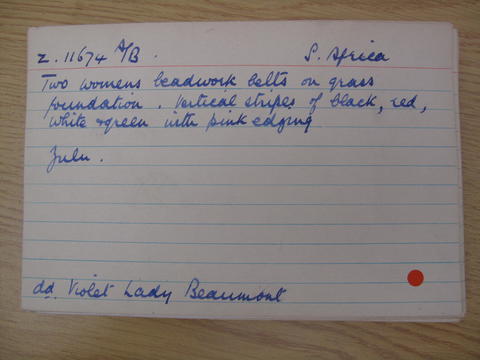 Z. 11674 A/B. S. Africa
Two womens beadwork belts on grass
foundation. Vertical stripes of black, red,
white & green with pink edging
Zulu.
dd. Violet Lady Beaumont